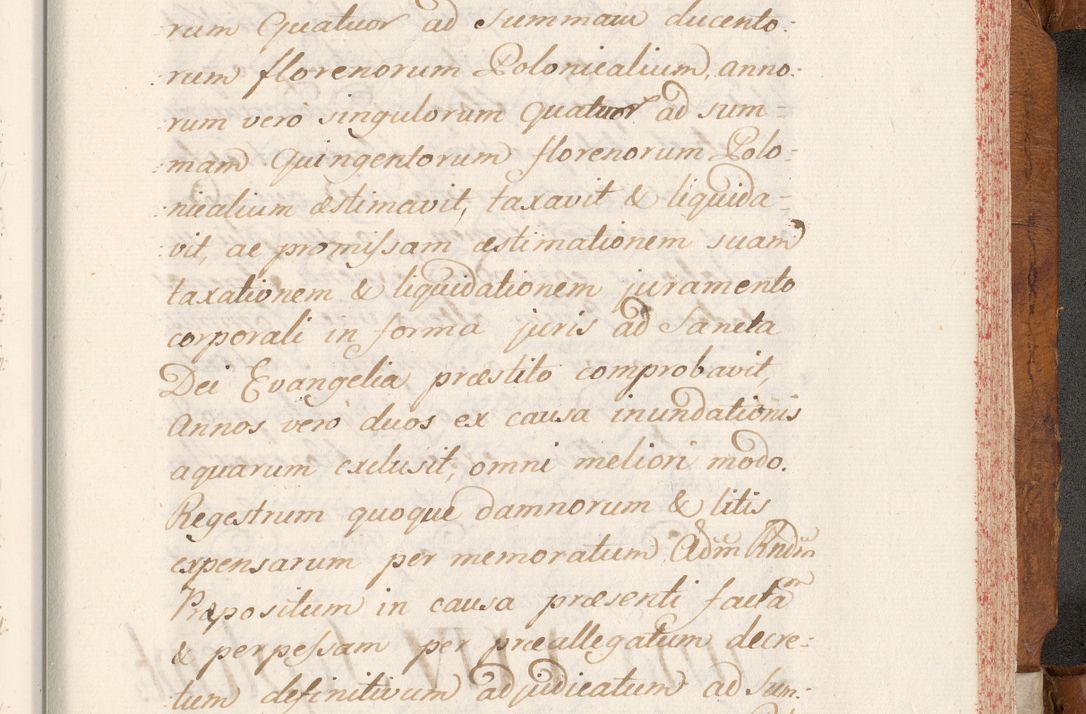 rum Quatuor ad summam ducento:
:rum florenorum Polonicalium, anno:
rum vero singulorum quatuor ad sum-
mam Quingentorum florenorum Polo:
nicalium æstimavit, taxavit & liquida-
vit, ac promissam æstimationem suam
taxationem & liquidationem juramento
corporali in forma juris ad Sancta
Dei Evangelia præstito comprobavit,
Annos vero duos ex causa inundationis
aquarum exclusit, omni meliori modo.
Regestrum quoque damnorum & litis
expensarum per memoratum Adm Rndm
Præpositum in causa præsenti factam
& perpessam per præallegatum decre:
tum definitivum adjudicatum ad Sum: